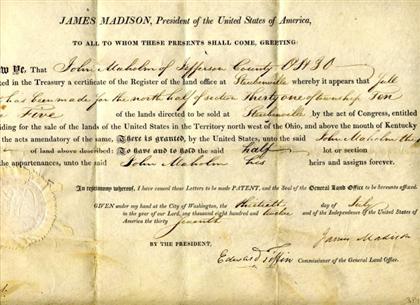 JAMES MADISON, President of the United States of America,
TO ALL TO WHOM THESE PRESENTS SHALL COME, GREETING:
w Ye, That John Maholm of Jefferson County OHIO
ited in the Treasury a certificate of the Register of the land office at Steubenville whereby it appears that full
has been made for the north half of section thirty one of township Ten
Five of the lands directed to be sold at Steubenville by the act of Congress, entitled
iding for the sale of the lands of the United States in the Territory north west of the Ohio, and above the mouth of Kentucky
the acts amendatory of the same, There is granted, by the United States, unto the said John Maholm the
of land above described: To have and to hold the said half lot or section
the appurtenances, unto the said John Maholm his heirs and assigns forever.
In testimony whereof, I have caused these Letters to be made PATENT, and the Seal of the General Land Office to be hereunto
GIVEN under my hand at the City of Washington, the thirtieth day of July
in the year of our Lord, one thousand eight hundred and twelve and of the Independence of the United States
of America the thirty seventh
BY THE PRESIDENT, James Madison
Edward Tiffin Commissioner of the General Land Office.